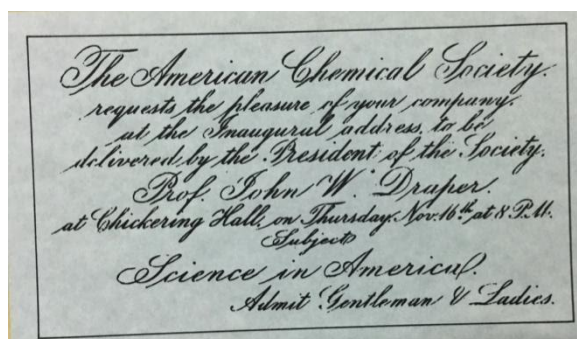 The American Chemical Society.
requests the pleasure of your company.
at the Inaugural address, to be
delivered by the President of the Society.
Prof. John W. Draper.
at Chickering Hall, on Thursday. Nov. 16th at 8 P.M.
Subject
Science in America.
Admit Gentleman & Ladies.